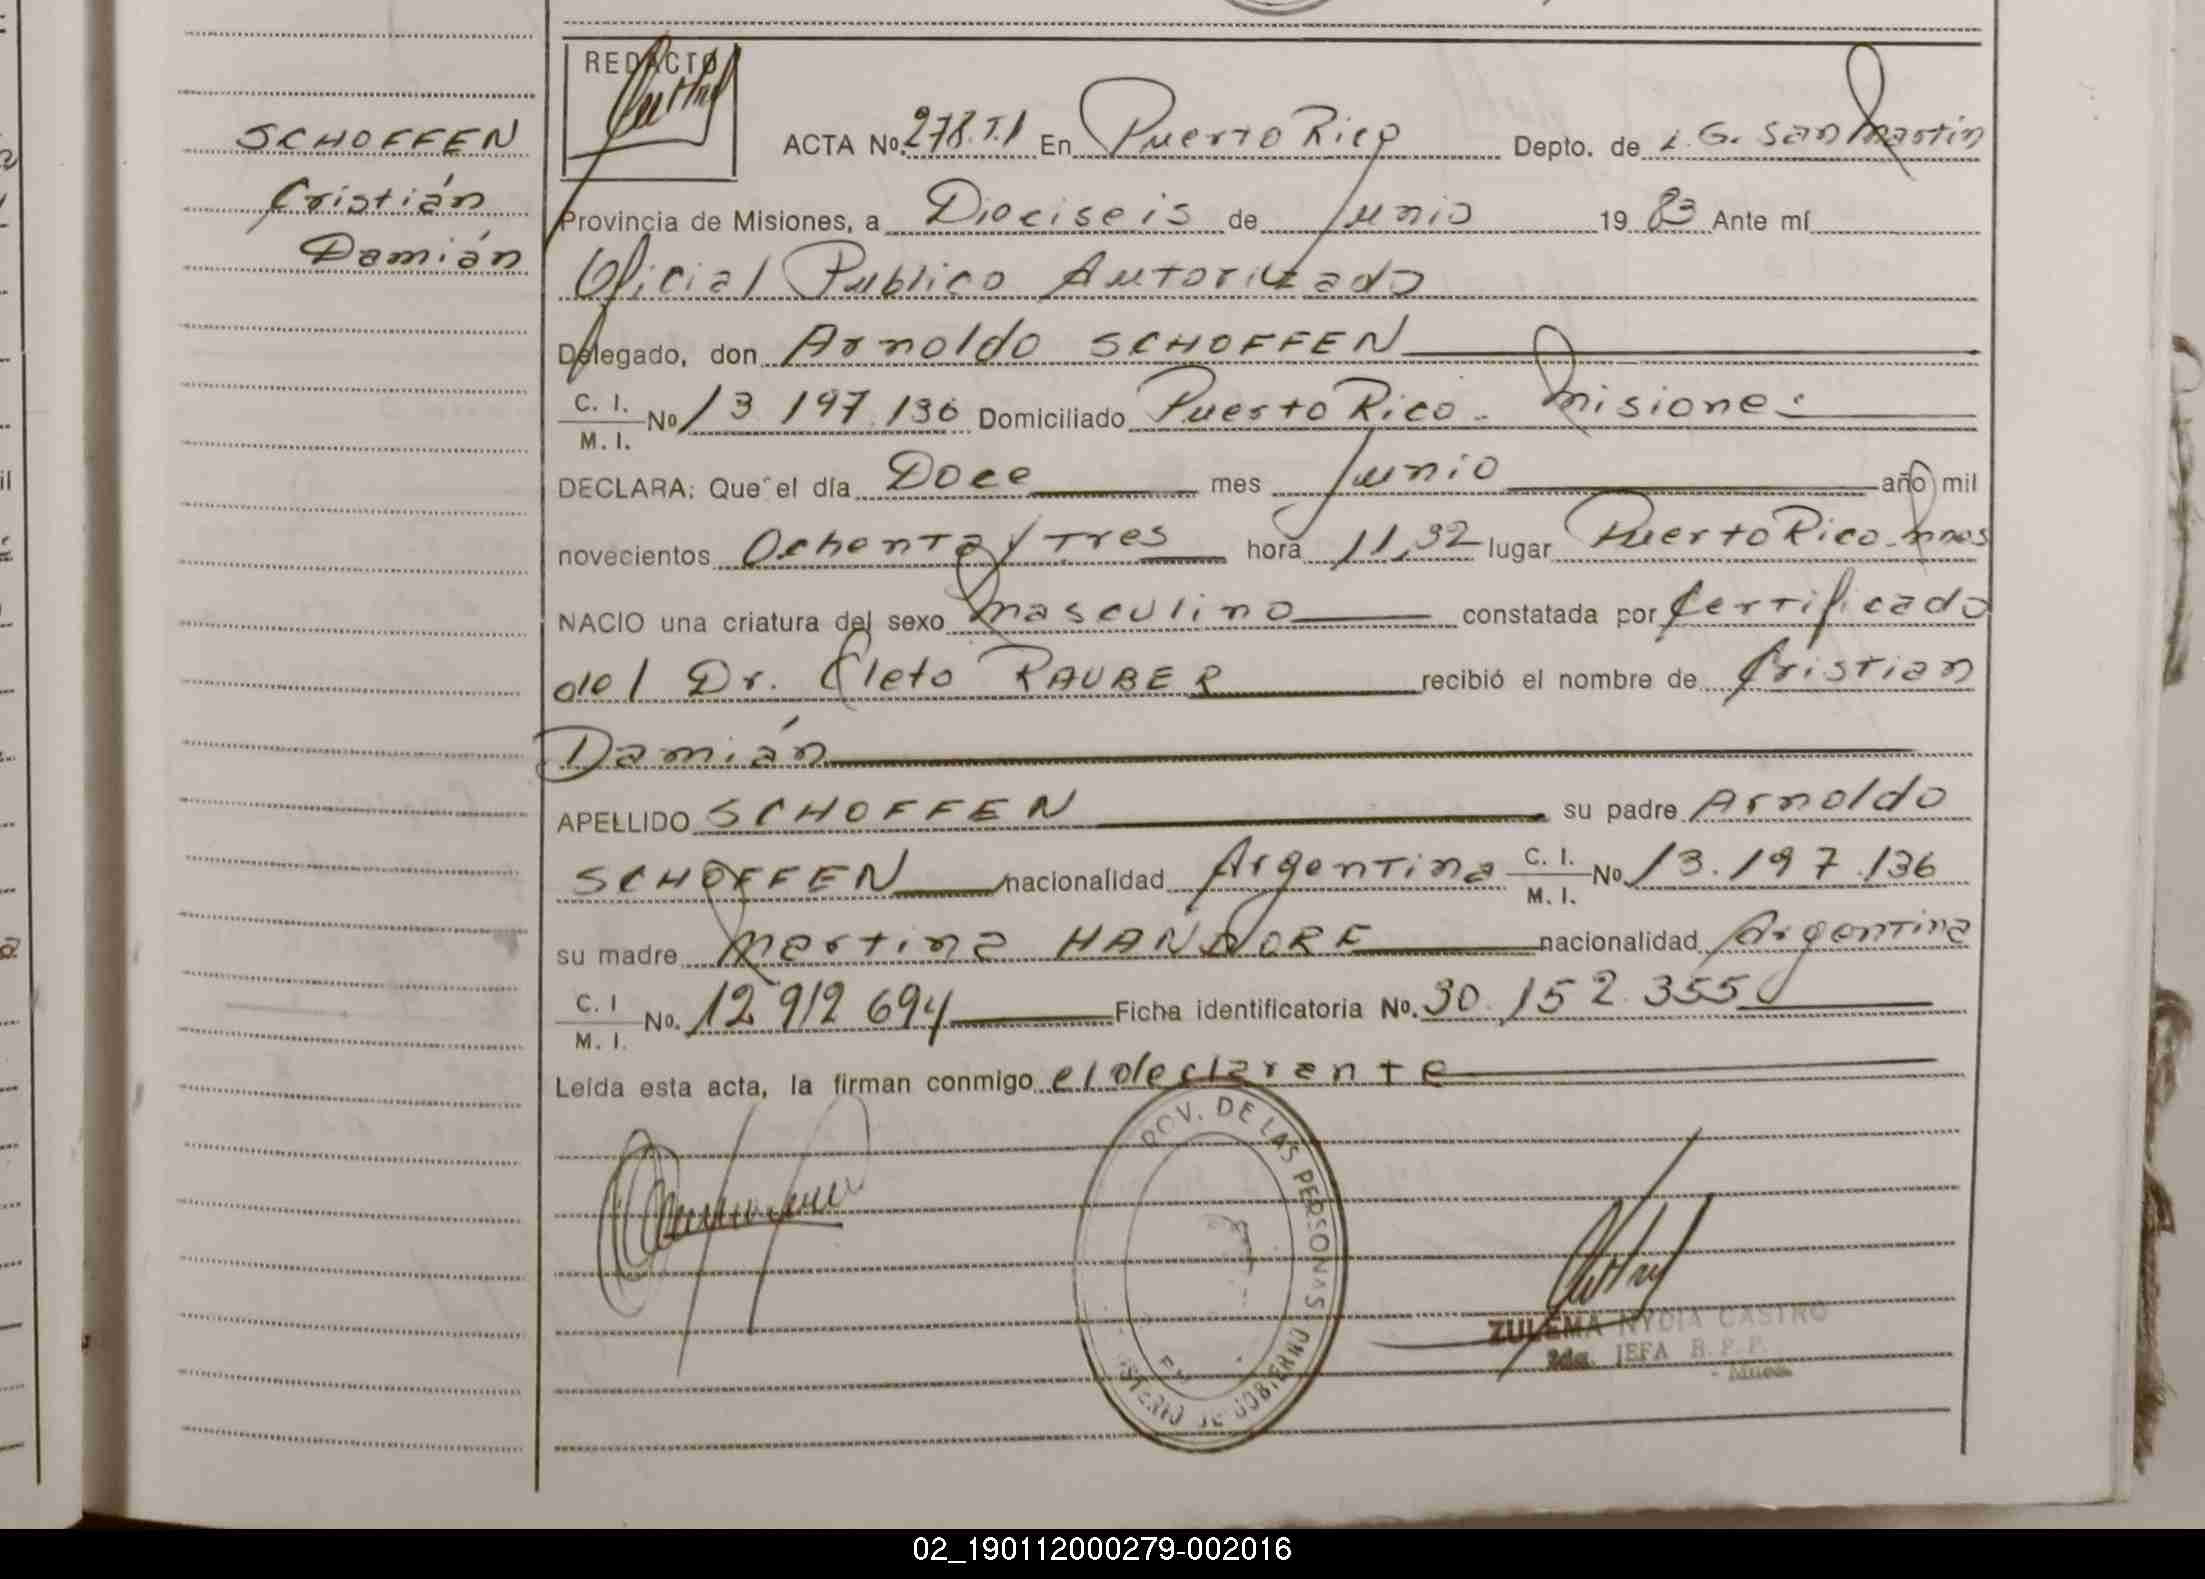 SCHOFFEN
Cristián
Damián
REDACTO
ACTA No. 278.T.I En Puerto Rico Depto. de L. G. San Martín
Provincia de Misiones, a Dieciseis de Junio 19 83 Ante mí
Oficial Publico Autorizado
Delegado, don Arnoldo SCHOFFEN
C. I.
M. I. No 13 197.136 Domiciliado Puerto Rico - Misiones
DECLARA: Que el día Doce mes Junio año mil
novecientos Ochenta y Tres hora 11,32 lugar Puerto Rico - Mnes
NACIO una criatura del sexo Masculino constatada por Certificado
del Dr. Cleto RAUBER recibió el nombre de Cristian
Damián
APELLIDO SCHOFFEN su padre Arnoldo
SCHOFFEN nacionalidad Argentina C. I.
M. I. No. 13.197.136
su madre Martina HANDORF nacionalidad Argentina
C. I
M. I. No. 12 912 694 Ficha identificatoria No. 30.152.355
Leída esta acta, la firman conmigo el declarante
PROV. DE LAS PERSONAS
MINISTERIO DE GOBIERNO
ZULEMA NYDIA CASTRO
2da. JEFA R. P. P.
02_190112000279-002016